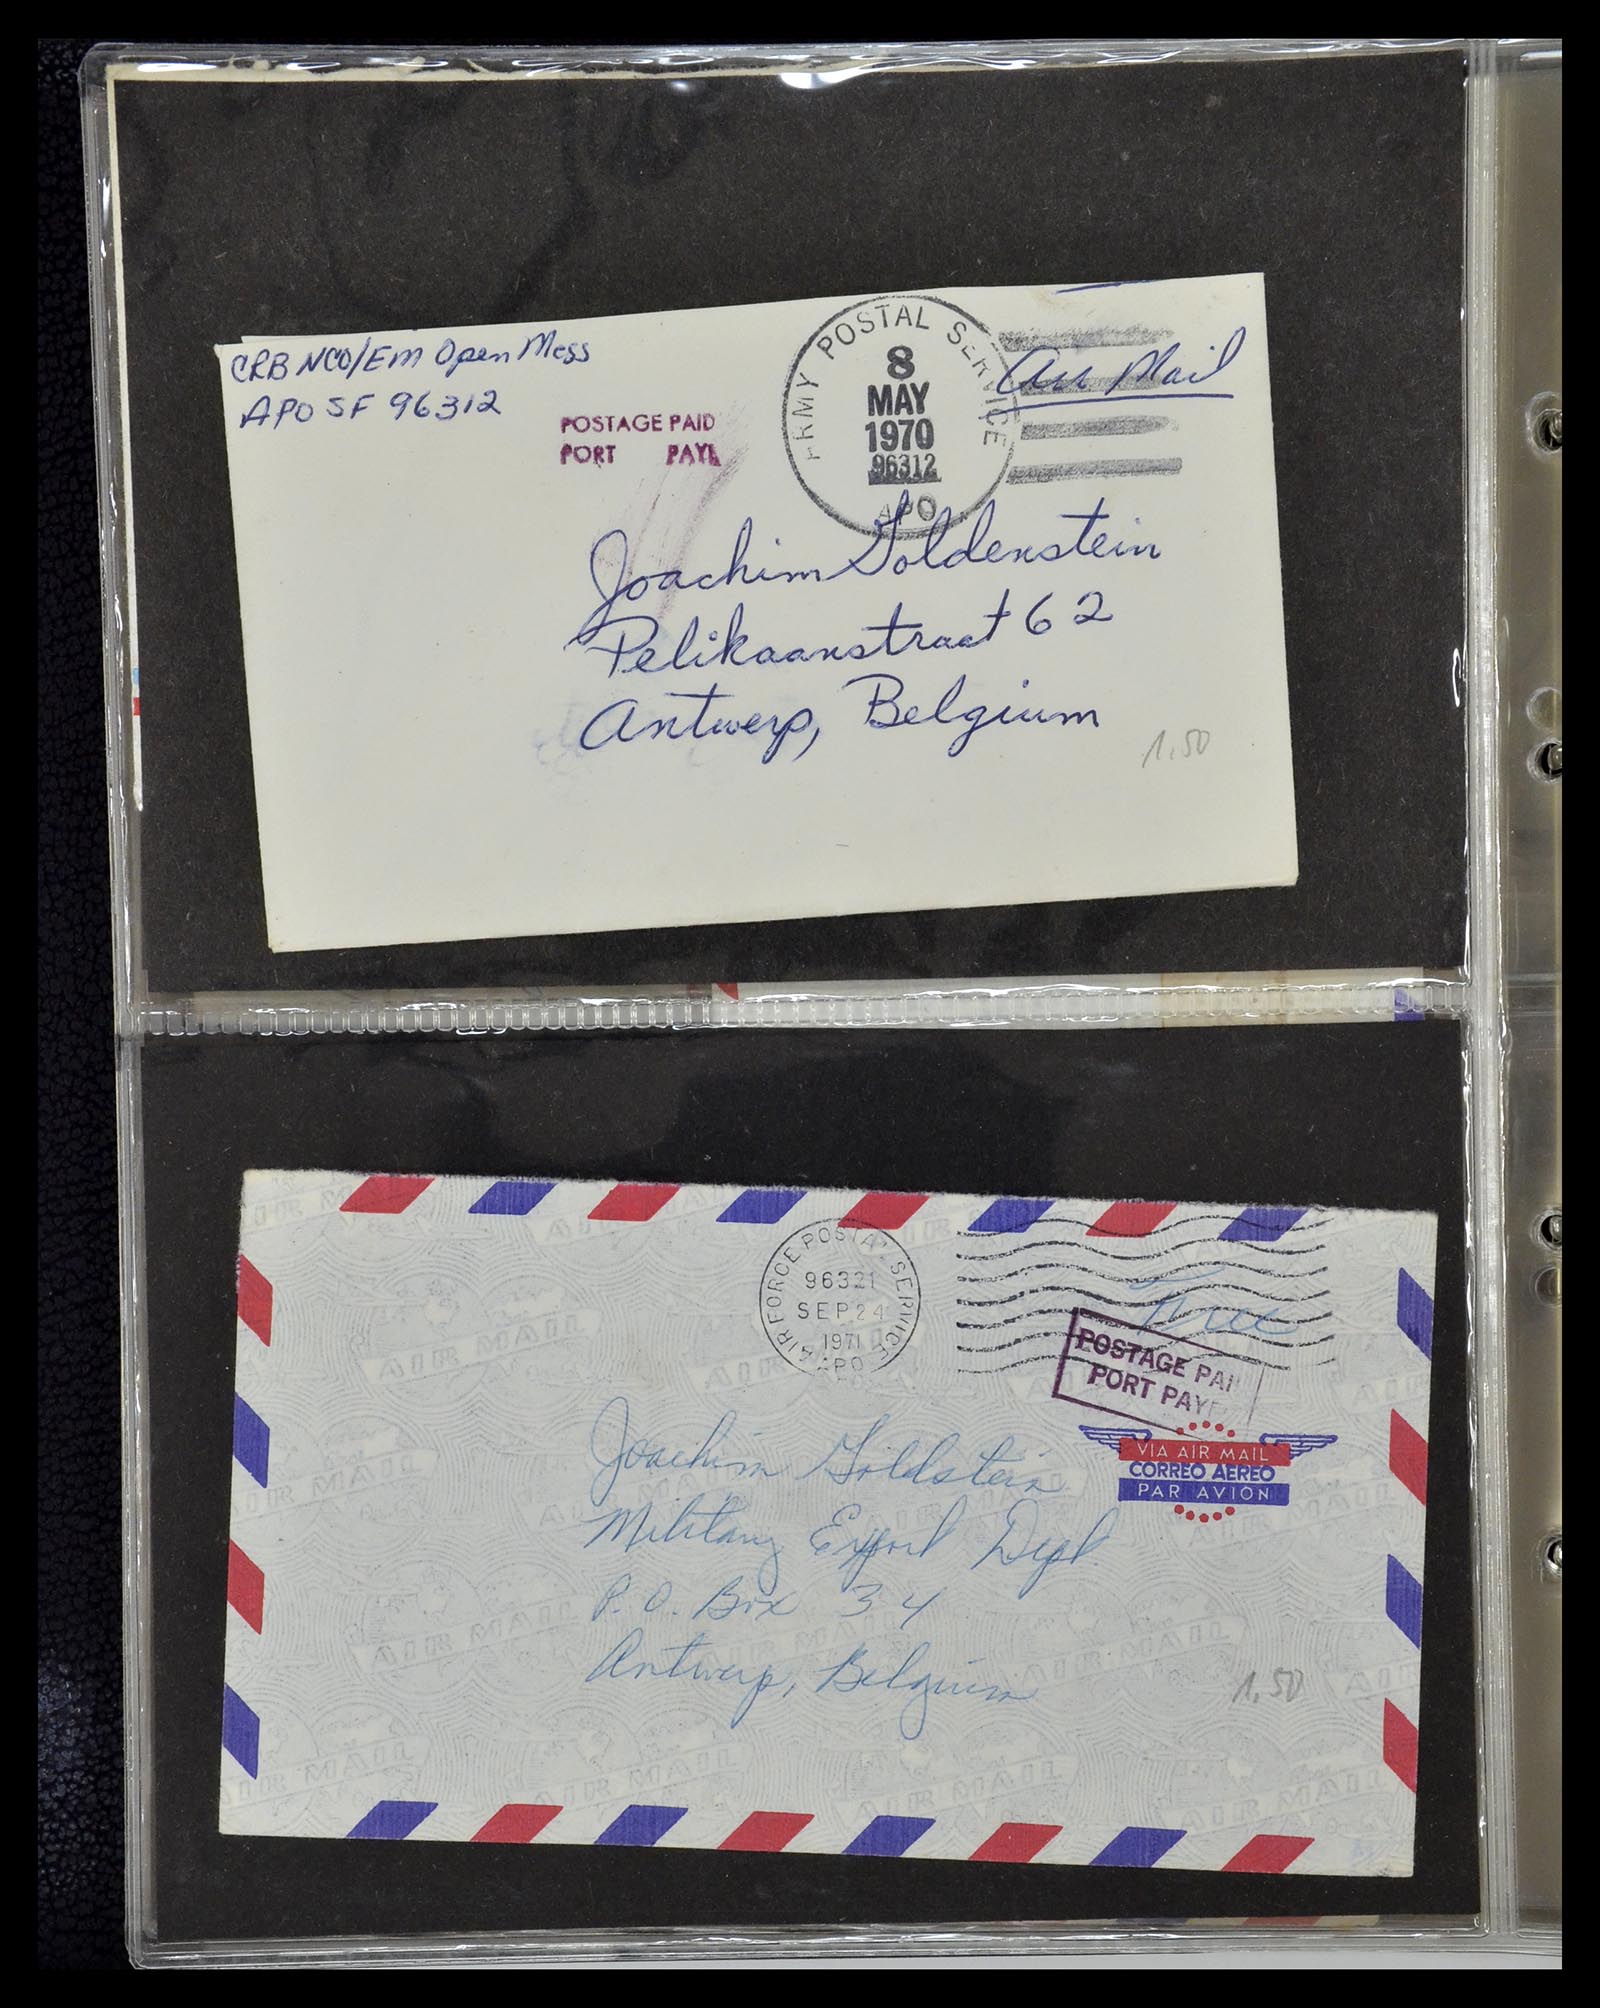 CRB NCO/EM Open Mess
APO SF 96312
POSTAGE PAID
PORT PAYE
ARMY POSTAL SERVICE
8
MAY
1970
96312
APO
Air Mail
Joachim Goldenstein
Pelikaanstraat 62
Antwerp, Belgium
1.50
AIR FORCE POSTAL SERVICE
96321
SEP 24
1971
APO
Free
POSTAGE PAI
PORT PAYE
VIA AIR MAIL
CORREO AEREO
PAR AVION
Joachim Goldstein
Military Export Dept.
P.O. Box 34
Antwerp, Belgium
1.50
AIR MAIL